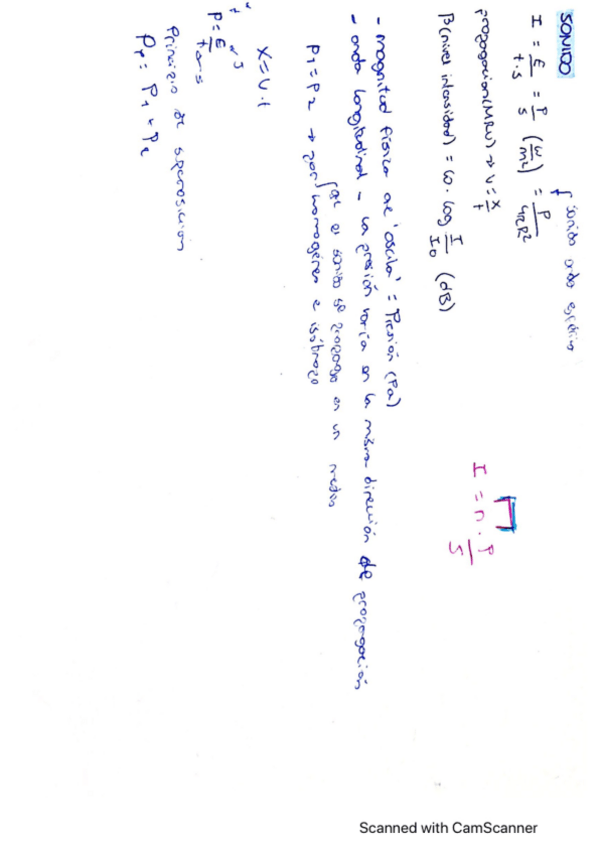 SONIDO
I = E/t·s = P/s (W/m²) = P/4πR²
sonido onda esférica
propagación (MRU) → v = x/t
β (nivel intensidad) = 10 · log I/I₀ (dB)
I = n · P/S
- magnitud física que 'oscila' = Presión (Pa)
- onda longitudinal - la presión varía en la misma dirección de propagación
P1 = P2 → que el sonido se propaga en un medio
homogéneo e isótropo
x = v · t
P = E/t
Principio de superposición
PT = P1 + P2
Scanned with CamScanner